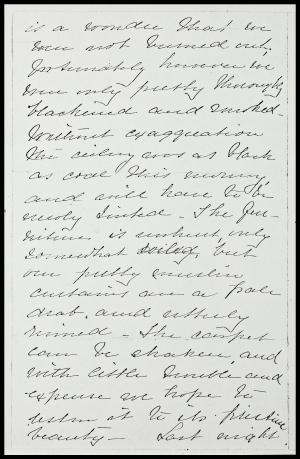 is a wonder that we
were not burned out,
fortunately however we
were only pretty thoroughly
blackened and smoked.
Without exaggeration
the ceiling was as black
as coal this morning,
and will have to be
newly tinted - The fur-
niture is unhurt, only
somewhat soiled, but
our pretty muslin
curtains are a pale
drab, and utterly
ruined - The carpet
can be shaken, and
with little trouble and
expense we hope to
restore it to its pristine
beauty - Last night